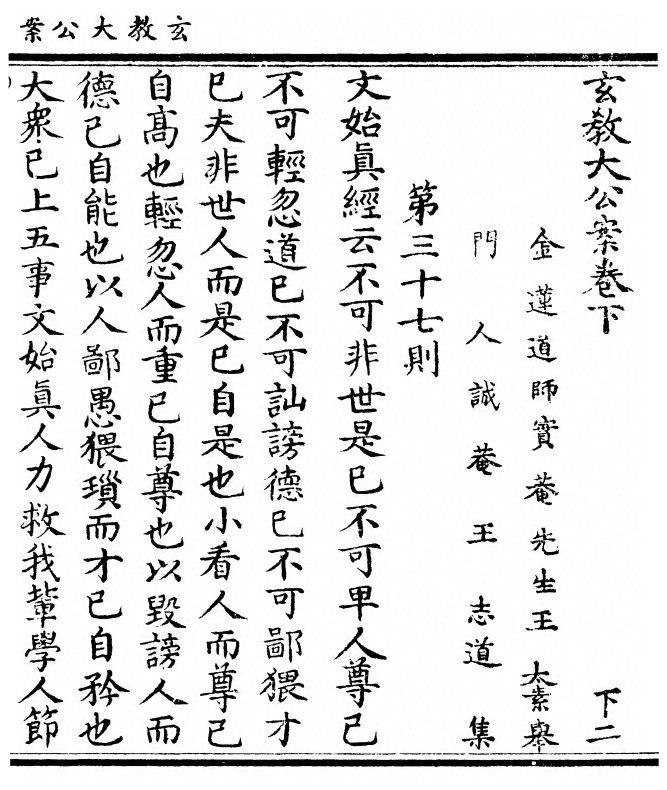 玄教大公案
玄教大公案卷下
下二
金蓮道師實菴先生王太素舉
門人誠菴王志道集
第三十七則
文始眞經云不可非世是已不可卑人尊已
不可輕忽道已不可訕謗德已不可鄙猥才
已夫非世人而是已自是也小看人而尊已
自高也輕忽人而重已自尊也以毀謗人而
德已自能也以人鄙愚猥瑣而才已自矜也
大衆已上五事文始眞人力救我輩學人節